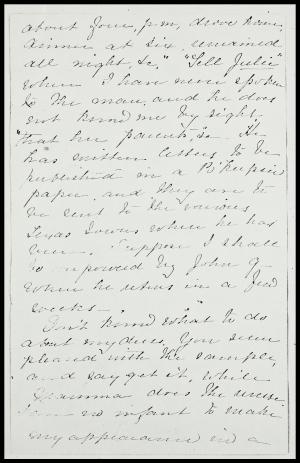 about four, p.m, drove him,
dinner at six, remained
all night &c," "Tell Julie"
when I have never spoken
to the man, and he does
not know me by sight,
"that her parents, &c. He
has written letters to be
published in a P'Keepsie
paper, and they are to
be sent to the various
Texas towns where he has
been. Suppose I shall
be empowered by John G-
when he returns in a few
weeks-
Don't know what to do
about my dress, You seem
pleased with the sample,
and say get it, while
Gramma does the
I am no infant to make
my appearance in a